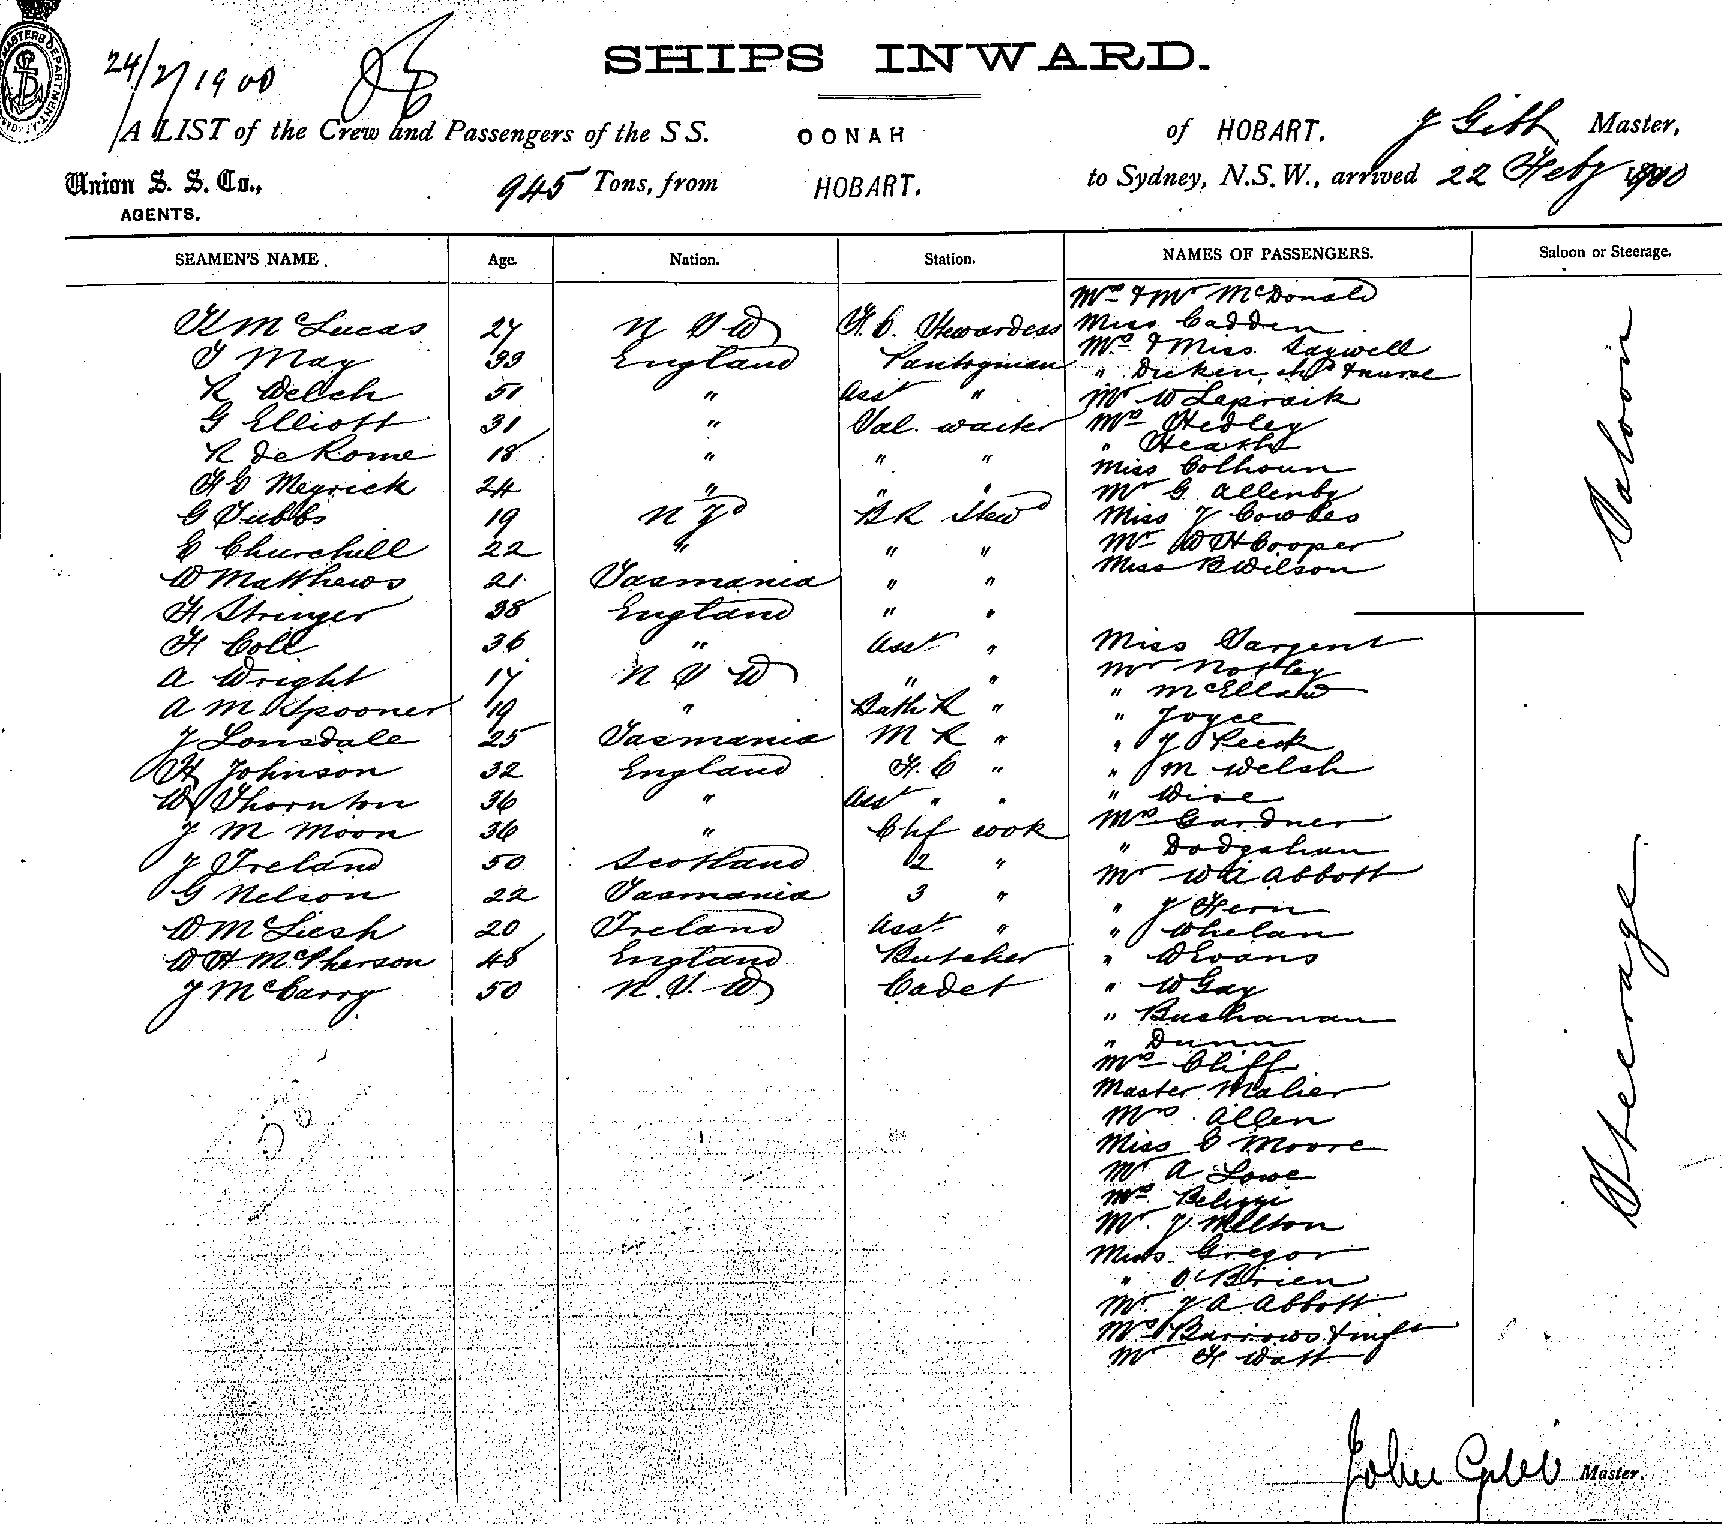 24/2/1900
SHIPS INWARD.
A LIST of the Crew and Passengers of the SS. OONAH of HOBART. J Gibb Master,
Union S. S. Co., 945 Tons, from HOBART. to Sydney, N.S.W., arrived 22 Feby 1900
AGENTS.
SEAMEN'S NAME. Age. Nation. Station. NAMES OF PASSENGERS. Saloon or Steerage.
Mrs & Mr McDonald
McLucas 27 N S W F.C. Stewardess Miss Cadden
May 33 England Pantryman Mrs & Miss Saywell
R Welch 51 " Asst " " Dicken & nurse
G Elliott 31 " Sal. waiter Mr W Lapraik
R de Rome 18 " " " Mrs Hedley
" Heath
Meyrick 24 " " " Miss Colhoun
Mr G. Allenby
G Tubbs 19 N Zd B R Stewd Miss J Cowles
E Churchill 22 " " " Mr W H Cooper
W Matthews 21 Tasmania " " Miss B Wilson
H Stringer 38 England " "
Saloon
H Coll 36 " Asst " Miss Sargent
A Wright 17 N S W " " Mr Notley
A M Spooner 19 " Bath R " "
J Lonsdale 25 Tasmania M R " " Joyce
" J
H Johnson 32 England F.C " " M Welsh
W Thornton 36 " Asst " " " Wise
J M Moon 36 " Chf cook Mrs Gardner
J Ireland 50 Scotland 2 " "
G Nelson 22 Tasmania 3 " Mr W A Abbott
" J Hern
W McLiesh 20 Ireland Asst " " Whelan
W H McPherson 48 England Butcher " D Evans
J McCarry 50 N.S.W Cadet " W Gay
" Buchanan
" Dunn
Mrs Cliff
Master Malier
Mrs Allen
Miss E Moore
Mr A Lowe
Mrs
Mr J Milton
Miss Gregor
" O'Brien
Mr J A Abbott
Mrs Barrows & inft
Mr H Watt
Steerage
John Gibb Master.